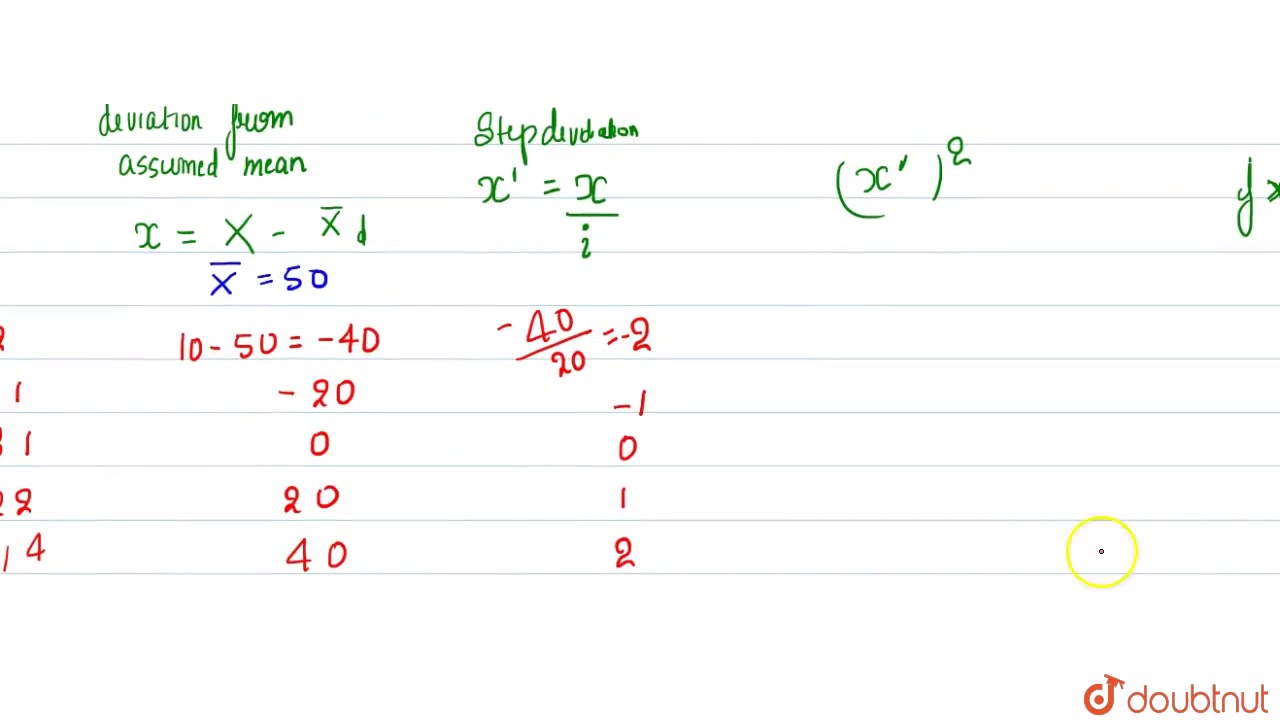 deviation from
assumed mean
Step deviation
x = X - X̄ d
X̄ = 50
x' = x/i
(x')²
2 10 - 50 = -40 -40/20 = -2
1 -20 -1
1 0 0
22 20 1
14 40 2
doubtnut